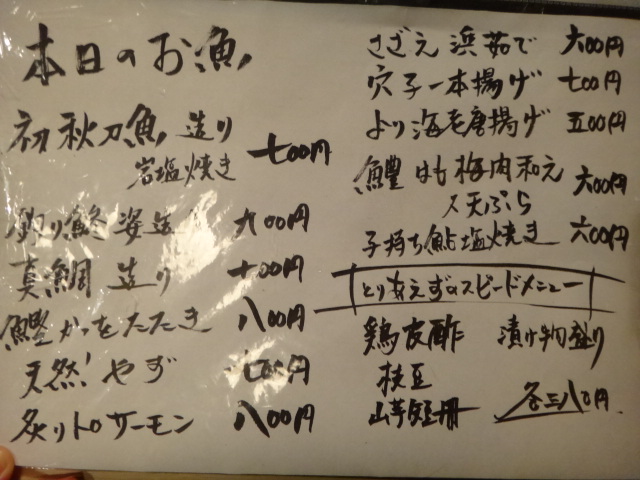 本日のお魚
初秋刀魚 造り
岩塩焼き 七00円
釣り鯵 姿造り 九00円
真鯛 造り 七00円
鰹 かつをたたき 八00円
天然!やず 七00円
炙りトロサーモン 八00円
さざえ 浜茹で 六00円
穴子一本揚げ 七00円
より海老唐揚げ 五00円
鱧 はも梅肉和え
又天ぷら 六00円
子持ち鮎塩焼き 六00円
とりあえずのスピードメニュー
鶏皮酢 漬け物盛り
枝豆
山芋短冊 各三八0円